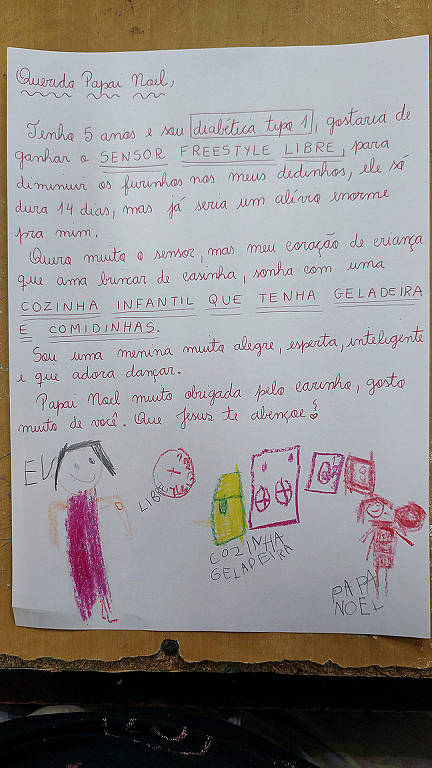 Querido Papai Noel,
Tenho 5 anos e sou diabética tipo 1, gostaria de
ganhar o SENSOR FREESTYLE LIBRE, para
diminuir os furinhos nos meus dedinhos, ele só
dura 14 dias, mas já seria um alívio enorme
pra mim.
Quero muito o sensor, mas meu coração de criança
que ama brincar de casinha, sonha com uma
COZINHA INFANTIL QUE TENHA GELADEIRA
E COMIDINHAS.
Sou uma menina muito alegre, esperta, inteligente
e que adora dançar.
Papai Noel muito obrigada pelo carinho, gosto
muito de você. Que Jesus te abençoe
EU
LIBRE
COZINHA
GELAPEIRA
PAPA
NOEL